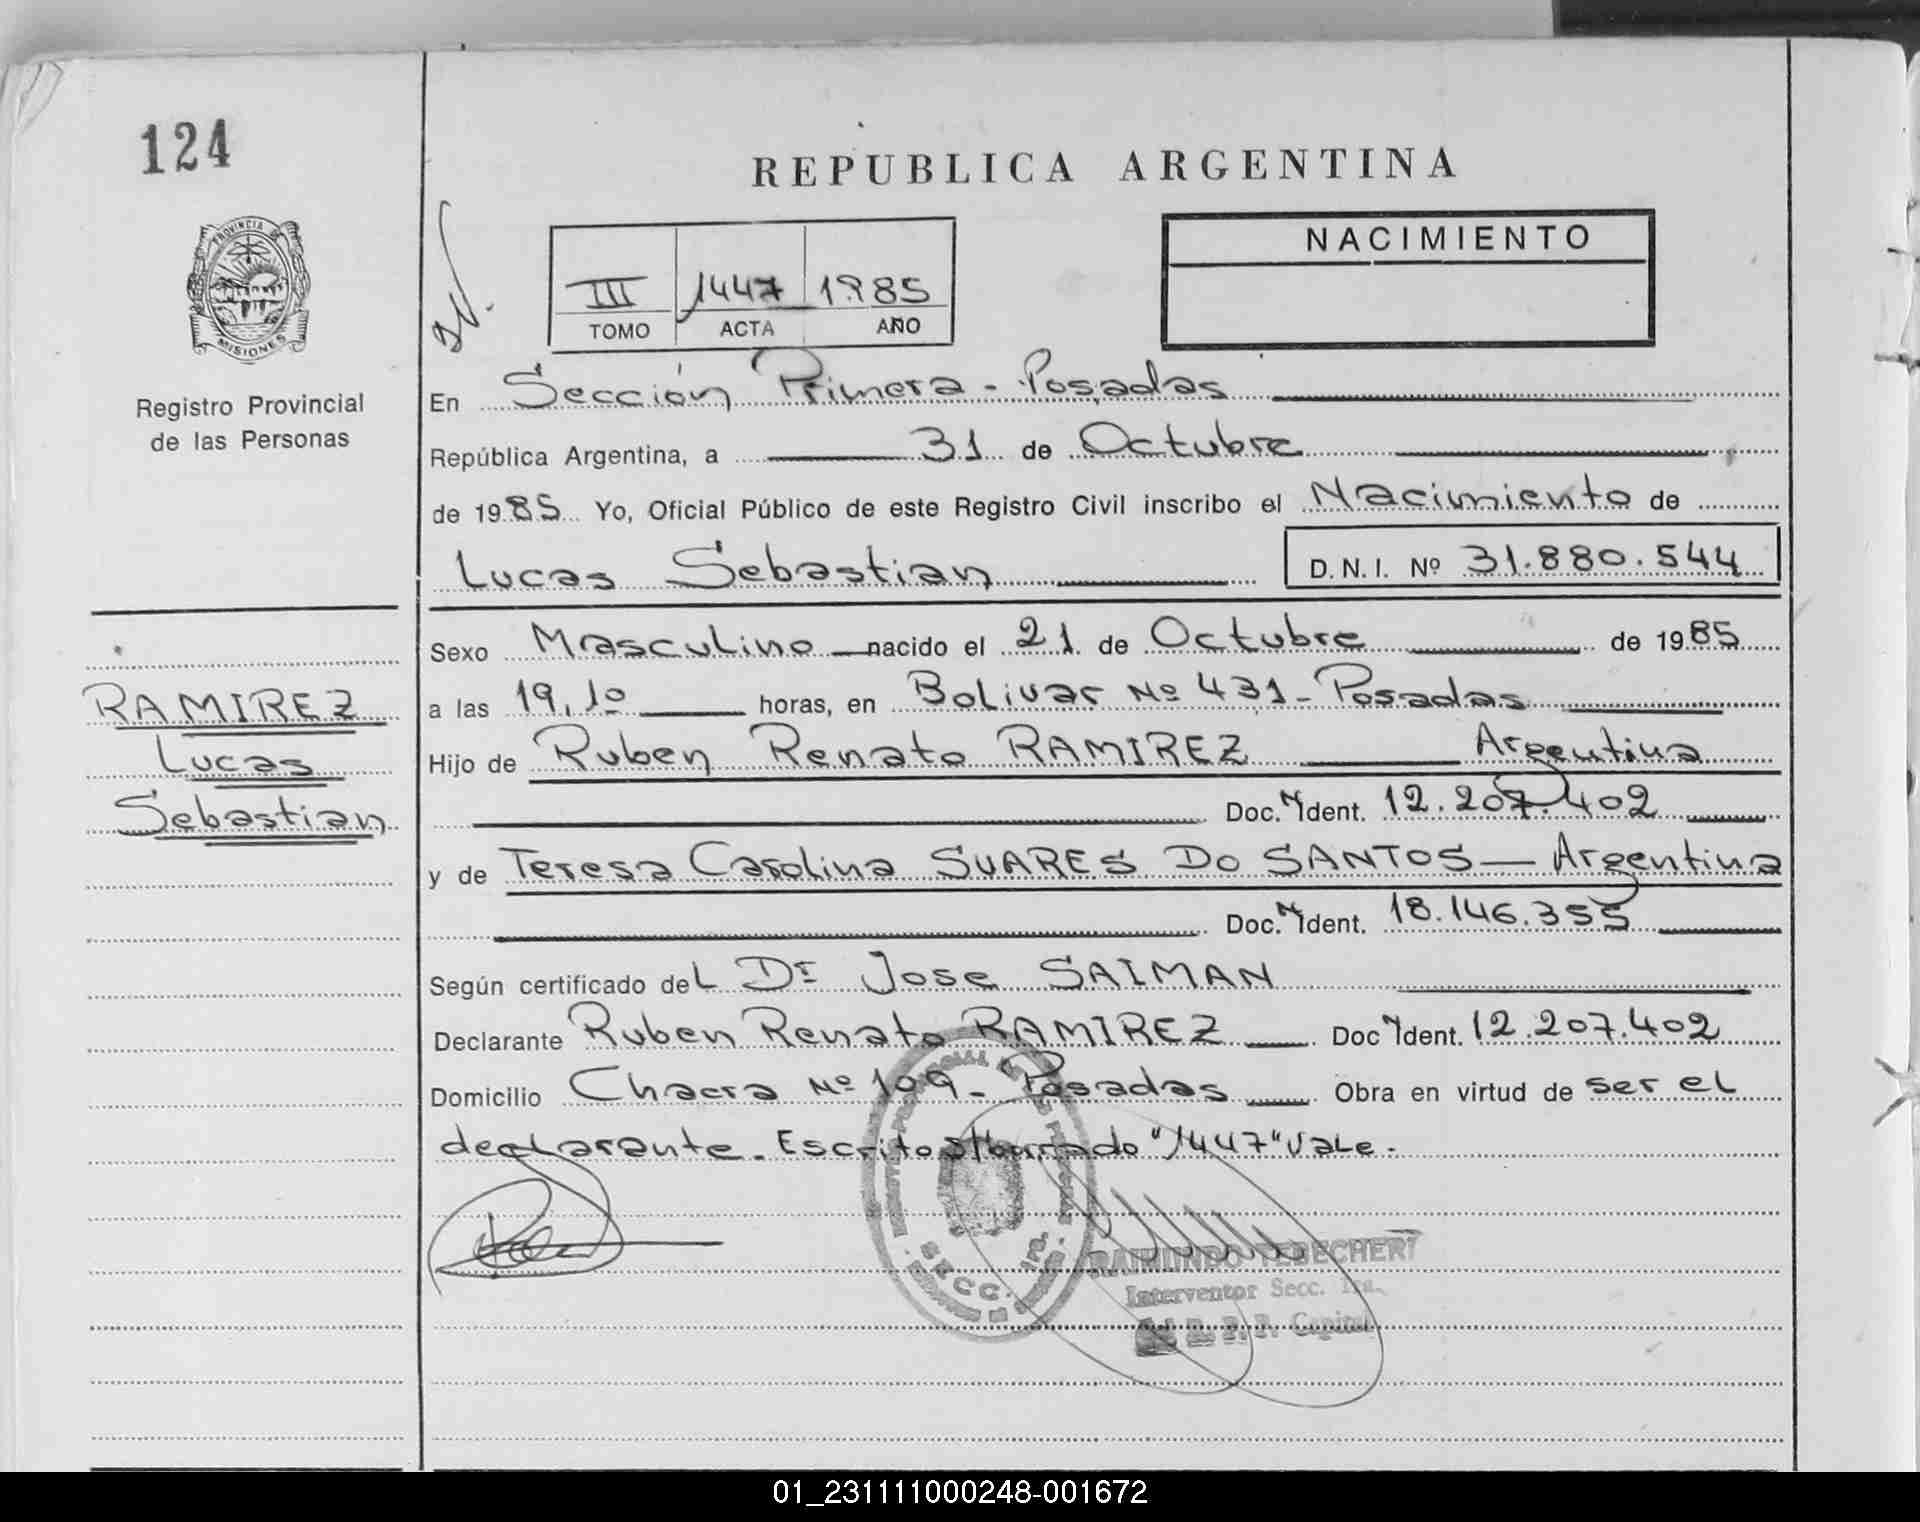 124
REPUBLICA ARGENTINA
PROVINCIA DE
MISIONES
Registro Provincial
de las Personas
NACIMIENTO
III 1447 1985
TOMO ACTA AÑO
En Sección Primera - Posadas
República Argentina, a 31 de Octubre
de 1985 Yo, Oficial Público de este Registro Civil inscribo el Nacimiento de
Lucas Sebastian D.N.I. Nº 31.880.544
Sexo Masculino nacido el 21 de Octubre de 1985
a las 19,10 horas, en Bolivar Nº 431 - Posadas
RAMIREZ
Lucas
Sebastian
Hijo de Ruben Renato RAMIREZ Argentina
Doc. Ident. 12.207.402
y de Teresa Carolina SUARES DO SANTOS Argentina
Doc. Ident. 18.146.355
Según certificado del Dr Jose SAIMAN
Declarante Ruben Renato RAMIREZ Doc Ident. 12.207.402
Domicilio Chacra Nº 109 - Posadas Obra en virtud de ser el
declarante. Escrito s/borrado "1447" Vale.
SECC. 1ra.
RAIMUNDO TEBECHERI
Interventor Secc. 1ra.
R. P. P. Capital
01_231111000248-001672